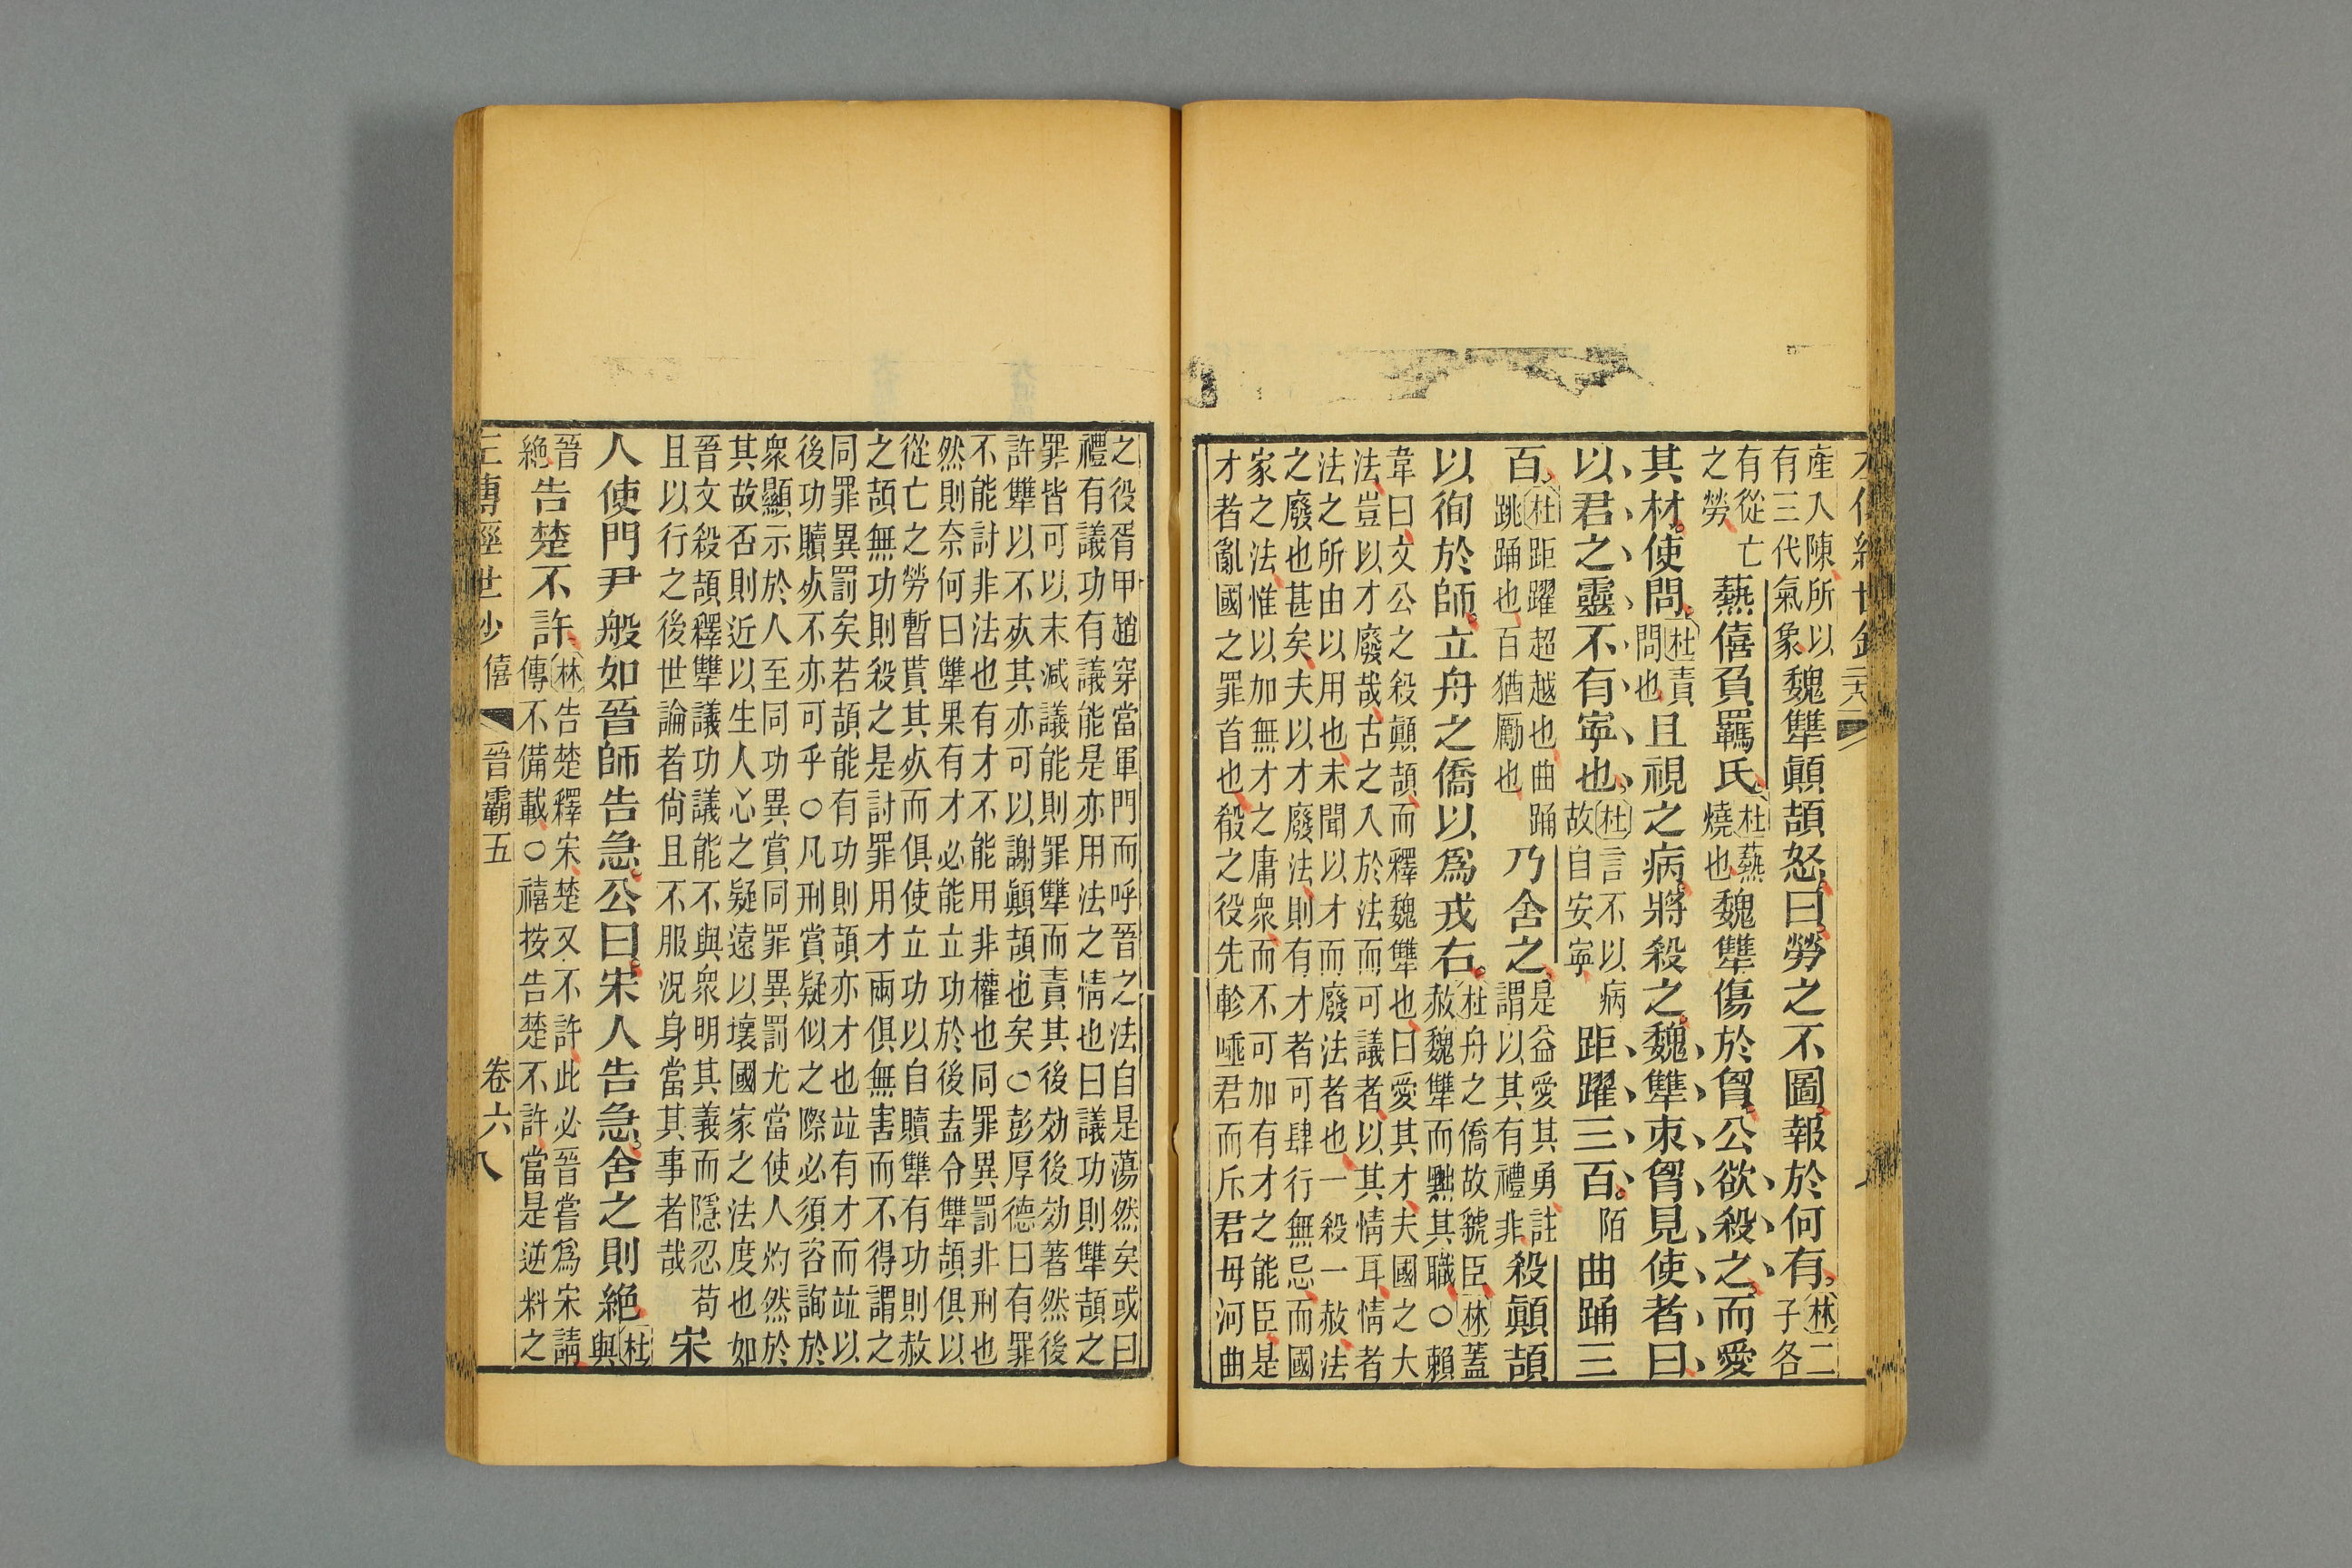 產入陳所以
有三代氣象魏犨顛頡怒曰勞之不圖報於何有林二
子各
有從亡
之勞爇僖負羈氏杜爇
燒也魏犨傷於胷公欲殺之而愛
其材使問杜責
問也且視之病將殺之魏犨朿胷見使者曰
以君之靈不有寧也杜言不以病
故自安寧距躍三百陌曲踊三
百杜距躍超越也曲踊
跳踊也百猶勵也乃舍之是益愛其勇註
謂以其有禮非殺顛頡
以徇於師立舟之僑以爲戎右杜舟之僑故虢臣林蓋
赦魏犨而黜其職○賴
韋曰文公之殺顛頡而釋魏犨也曰愛其才夫國之大
法豈以才廢哉古之入於法而可議者以其情耳情者
法之所由以用也未聞以才而廢法者也一殺一赦法
之廢也甚矣夫夫以才廢法則有才者可肆行無忌而國
家之法惟以加無才之庸衆而不可加有才之能臣是
才者亂國之罪首也殽之役先軫唾君而斥君母河曲
之役胥甲趙穿當軍門而呼晉之法自是蕩然矣或曰
禮有議功有議能是亦用法之情也曰議功則犨頡之
罪皆可以末減議能則罪犨而責其後効後効著然後
許犨以不死其亦可以謝顛頡也矣○彭厚德曰有罪
不能討非法也有才不能用非權也同罪異罰非刑也
然則奈何曰犨果有才必能立功於後盍令犨頡俱以
從亡之勞暫貰其死而俱使立功以自贖犨有功則赦
之頡無功則殺之是討罪用才兩俱無害而不得謂之
同罪異罰矣若頡能有功則頡亦才也竝有才而竝以
後功贖死不亦可乎○凡刑賞疑似之際必須咨詢於
衆顯示於人至同功異賞同罪異罰尤當使人灼然於
其故否則近以生人心之疑遠以壞國家之法度也如
晉文殺頡釋犨議功議能不與衆明其義而隱忍苟
且以行之後世論者尙且不服況身當其事者哉宋
人使門尹般如晉師告急公曰宋人告急舍之則絕杜
與
晉
絕告楚不許林告楚釋宋楚又不許此必晉嘗爲宋請
傳不備載○禧按告楚不許當是逆料之
三傳經世鈔 僖 晉霸五 卷六 八